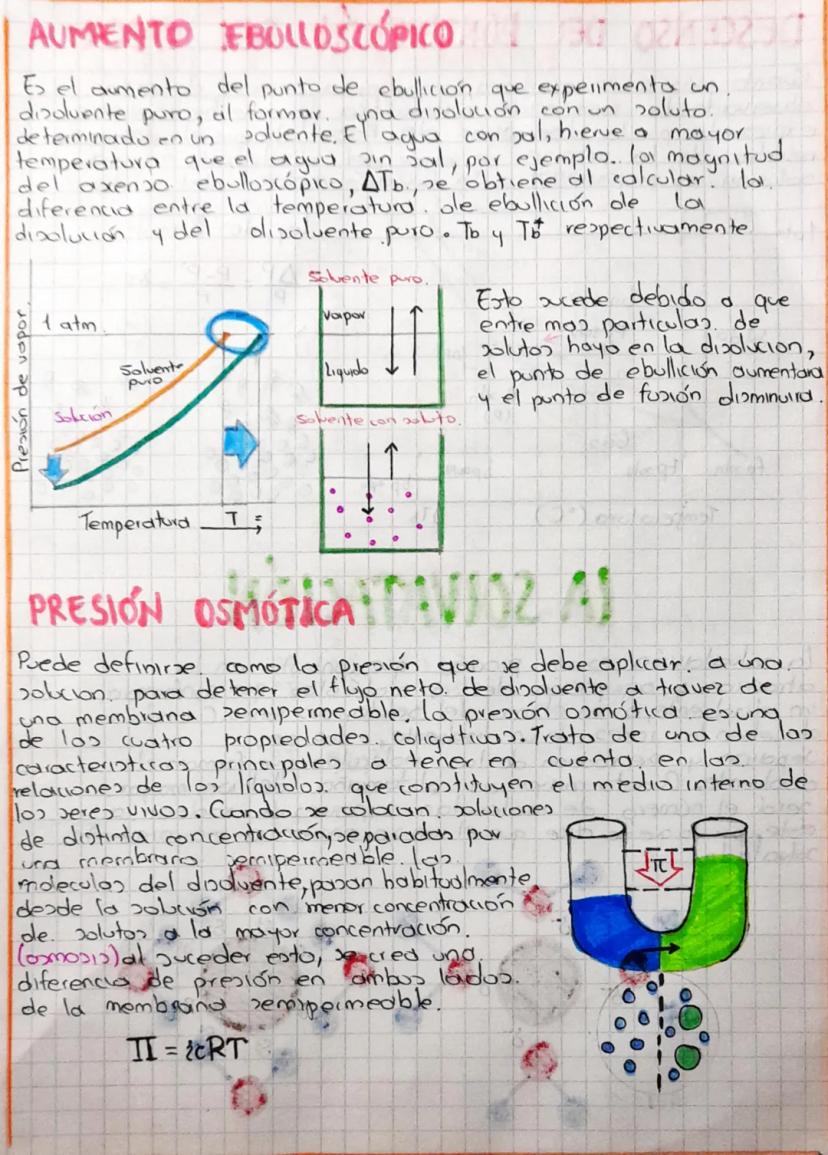 AUMENTO EBULLOSCÓPICO
Es el aumento del punto de ebullición que experimenta un
disolvente puro, al formar una disolución con un soluto
determinado en un solvente. El agua con sal, hierve a mayor
temperatura que el agua sin sal, por ejemplo. la magnitud
del axenso ebulloscópico, ΔTb, se obtiene al calcular la
diferencia entre la temperatura de ebullición de la
disolución y del disolvente puro. Tb y Tb* respectivamente
Presión de vapor
1 atm.
Solvente
puro
Solución
Temperatura T =
Solvente puro.
Vapor
Liquido
Solvente con soluto.
Esto sucede debido a que
entre mas particulas de
solutos haya en la disolucion,
el punto de ebullición aumentara
y el punto de fusión disminuira.
PRESIÓN OSMÓTICA
Puede definirse como la presión que se debe aplicar a una
solucion para detener el flujo neto de disolvente a travez de
una membrana semipermeable. la presión osmótica es una
de las cuatro propiedades coligativas. Trata de una de las
caracteristicas principales a tener en cuenta en las
relaciones de los líquidos que constituyen el medio interno de
los seres vivos. Cuando se colocan soluciones
de distinta concentración, separadas por
una membrana semipermeable. las
moleculas del disolvente, pasan habitualmente
desde la solución con menor concentración
de solutos a la mayor concentración.
(osmosis) al suceder esto, se crea una
diferencia de presión en ambos lados
de la membrana semipermeable.
π
Π = icRT